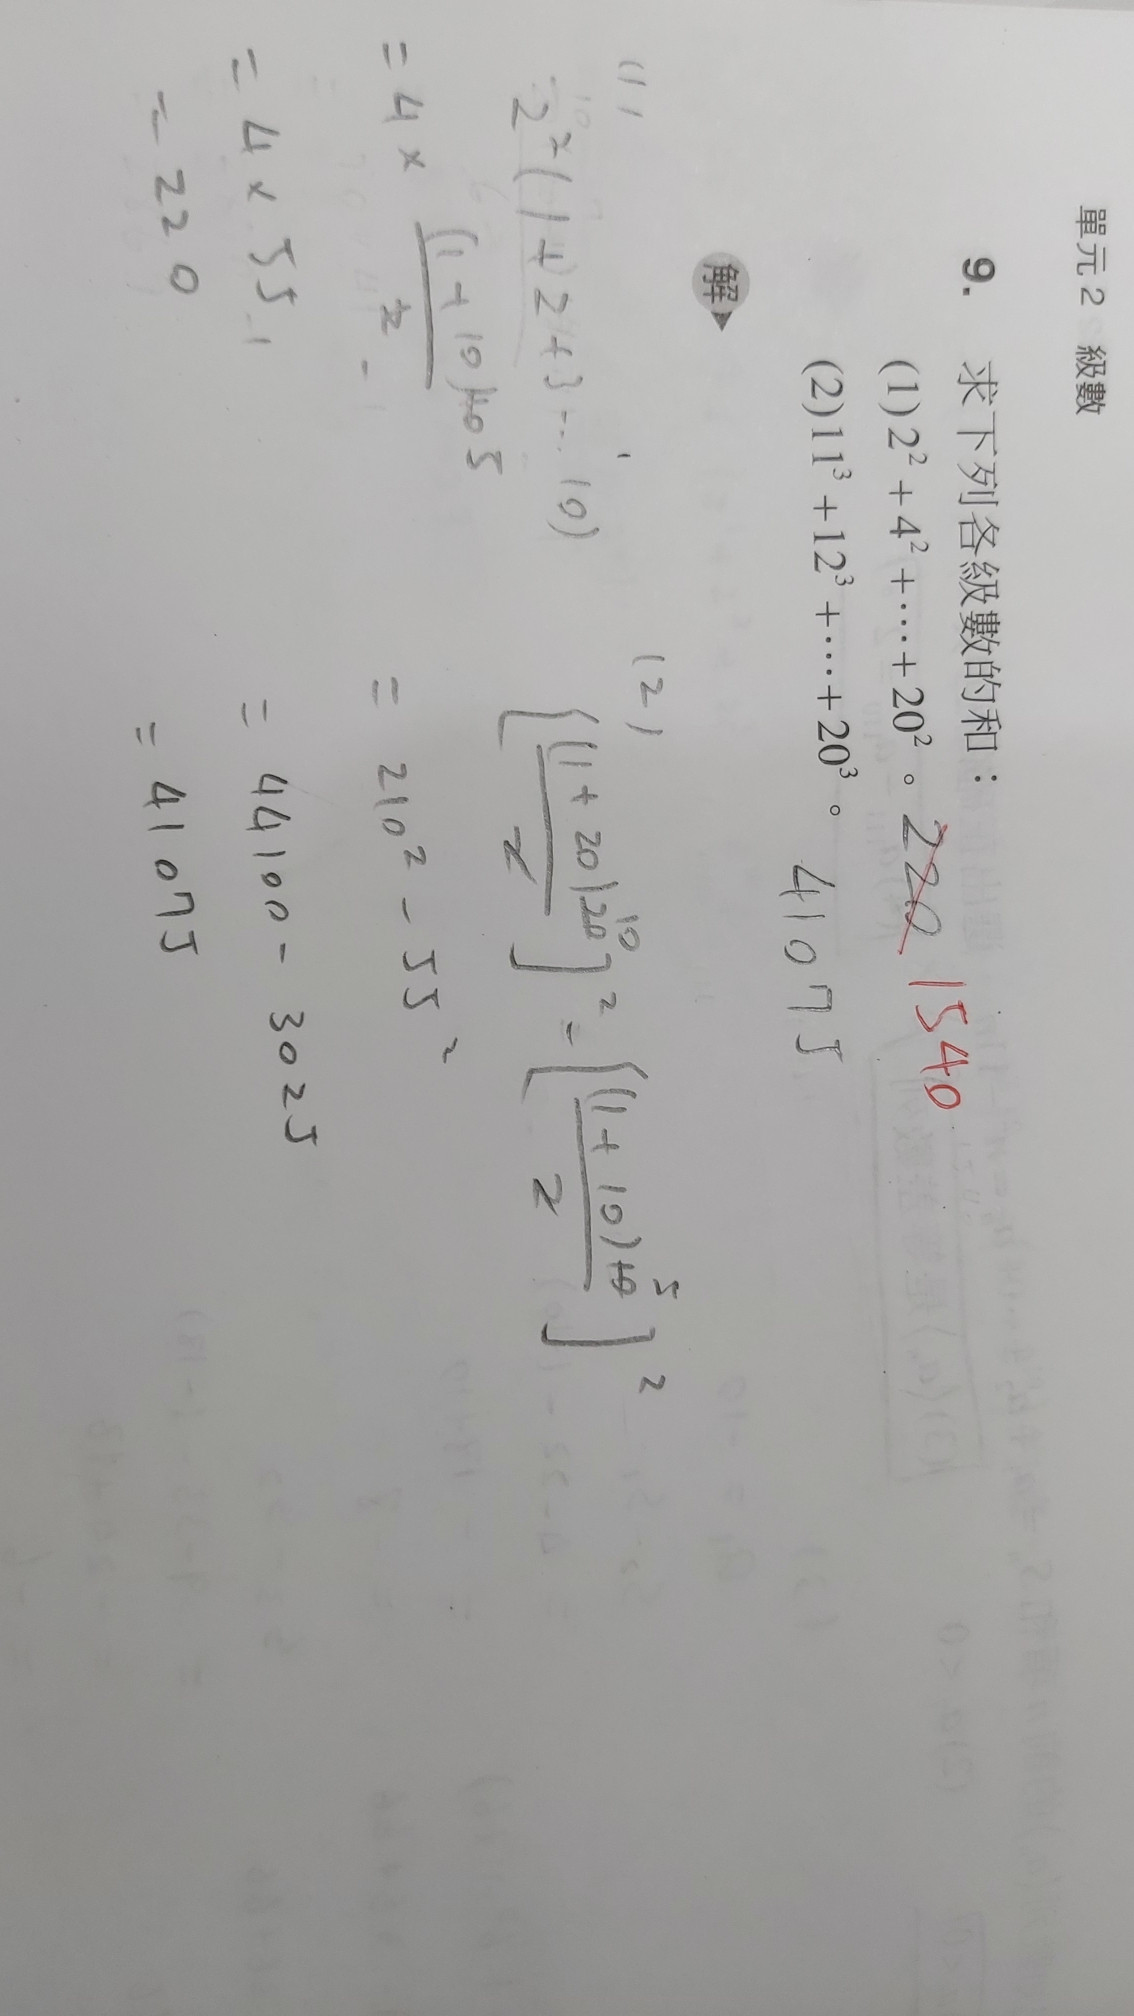 單元2 級數
9. 求下列各級數的和：
(1) 2² + 4² + ⋯ + 20²。 220 1540
(2) 11³ + 12³ + ⋯ + 20³。 41075
解
(1)
2²(1+2+3⋯10)
= 4 × (1+10)10 5 / 2
= 4 × 55
= 220
(2)
[(1+20)20 10 / 2]² - [(1+10)10 5 / 2]²
= 210² - 55²
= 44100 - 3025
= 41075